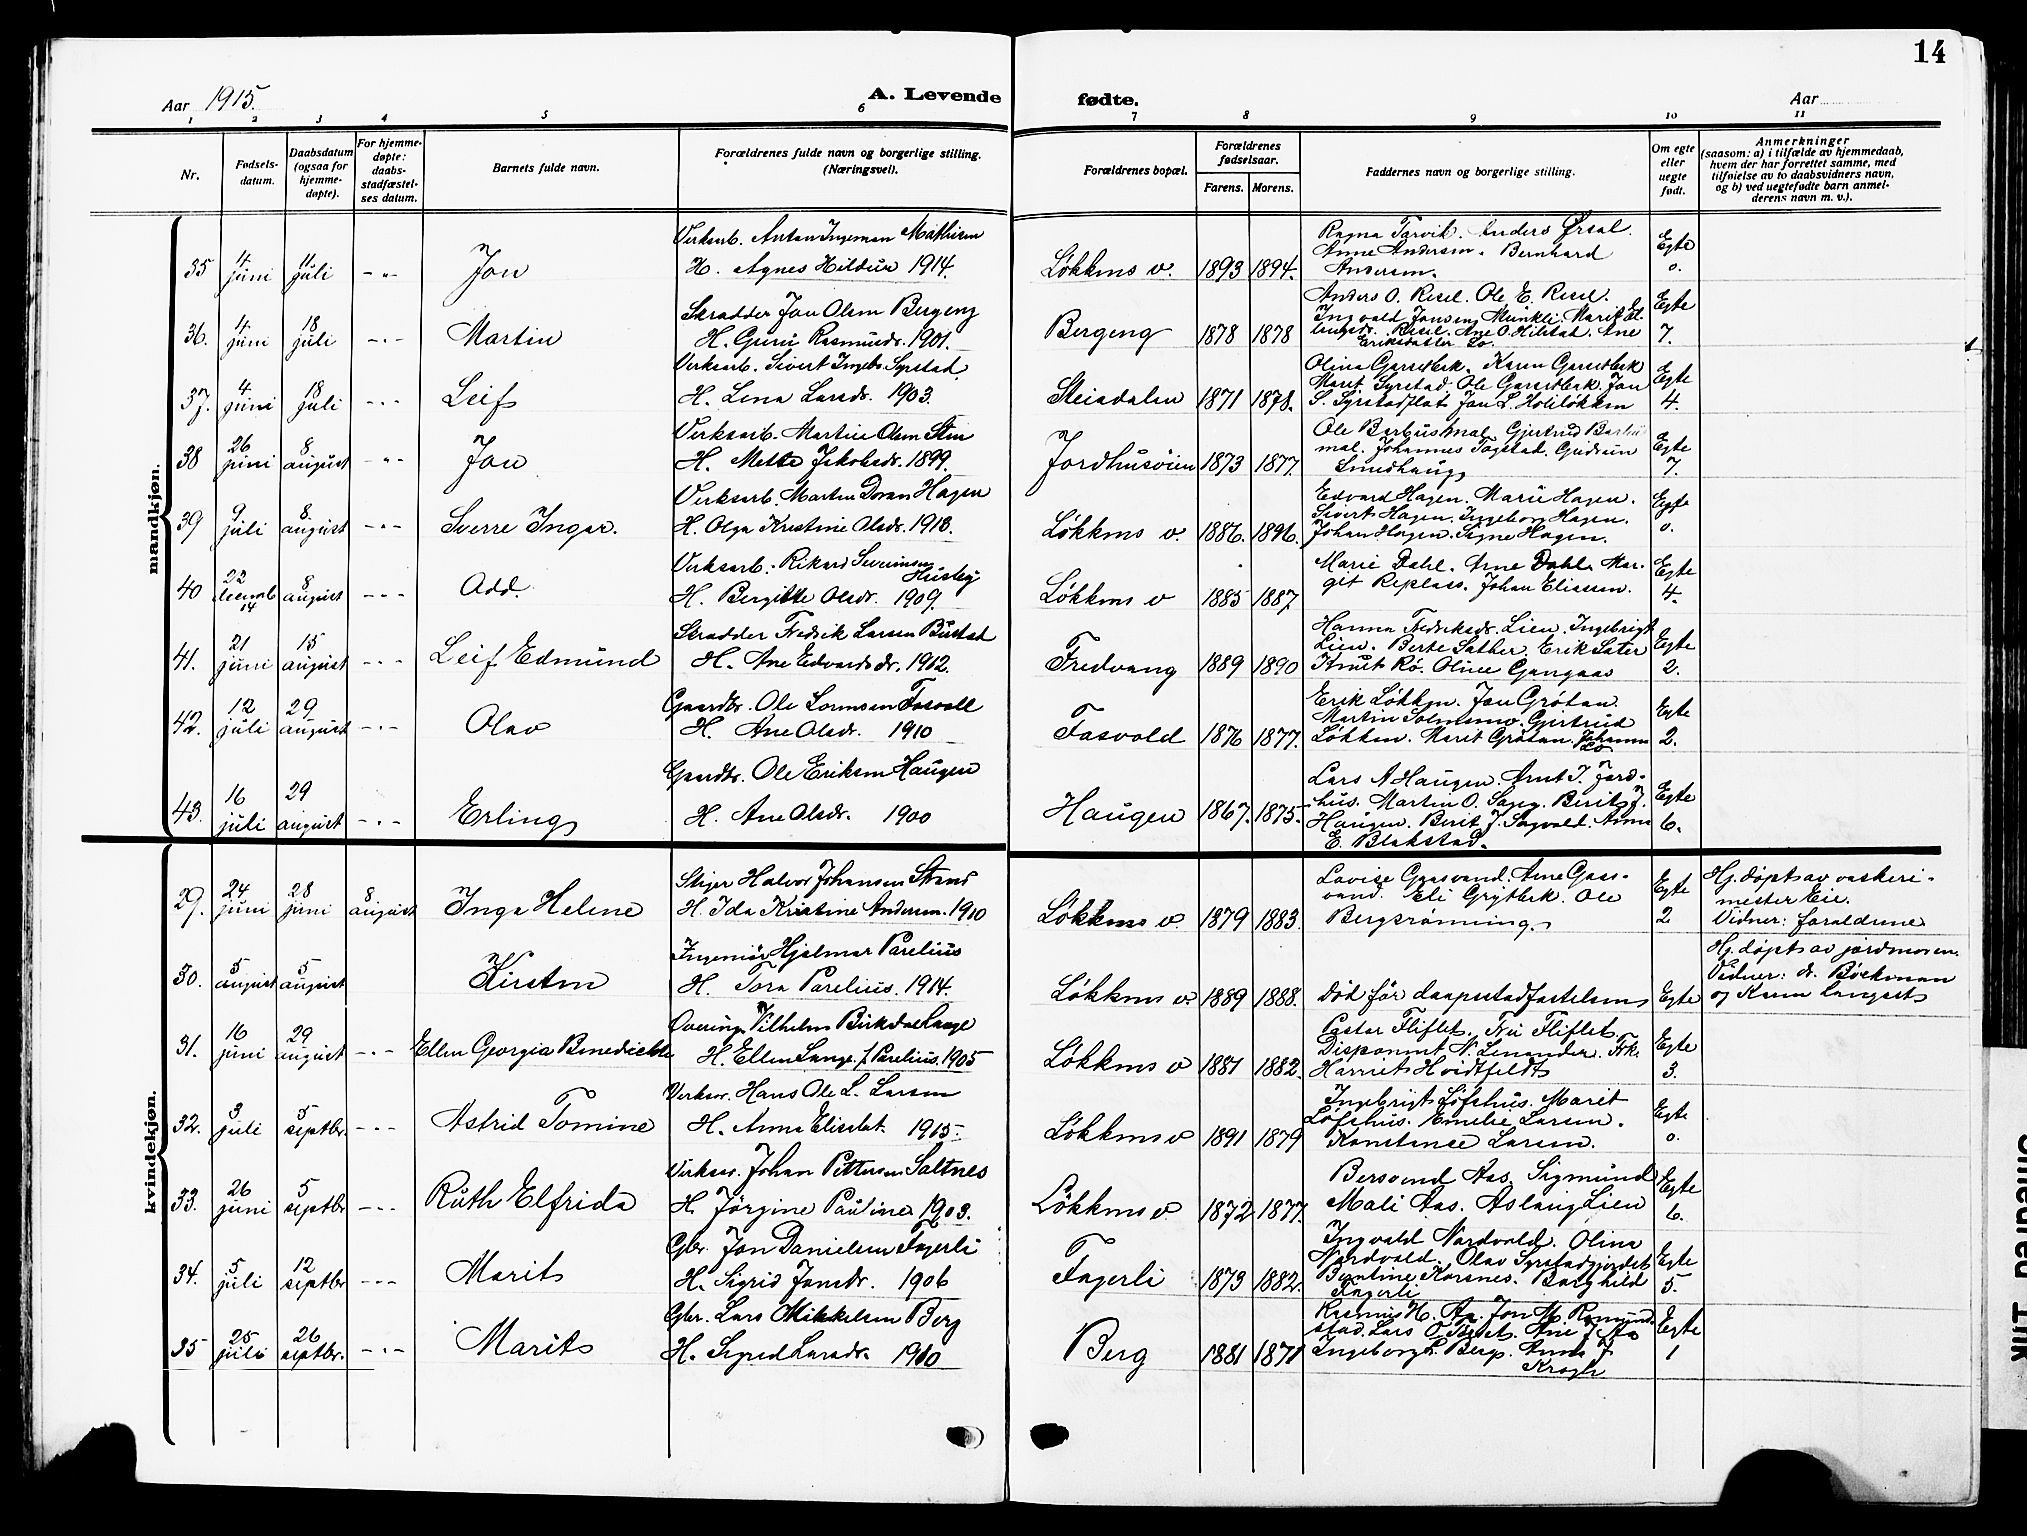 14
Aar 1915.
A. Levende fødte.
Aar
1 2 3 4 5 6 7 8 9 10 11
Nr.
Fødsels-
datum.
Daabsdatum
(ogsaa for
hjemme-
døpte).
For hjemme-
døpte:
daabs-
stadfæstel-
ses datum.
Barnets fulde navn.
Forældrenes fulde navn og borgerlige stilling.
(Næringsvei).
Forældrenes bopæl.
Forældrenes
fødselsaar.
Farens. Morens.
Faddernes navn og borgerlige stilling.
Om egte
eller
uegte
født.
Anmerkninger
(saasom: a) i tilfælde av hjemmedaab,
hvem der har forrettet samme, med
tilføielse av to daabsvidners navn,
og b) ved uegtefødte barn anmel-
derens navn m. v.).
mandkjøn.
35 4 juni 11 juli -"- Jon
Verksarb. Anton Ingeman Mathisen
H. Agnes Hildur 1914.
Løkkens v. 1893 1894.
Ragna Tarvik. Anders Ørsal.
Anne Andersen. Bernhard
Andersen.
Egte
0.
36. 4 juni 18 juli -"- Martin
Skrædder Jon Olsen Bergeng
H. Guru Rasmusdr. 1901.
Bergeng 1878 1878
Anders O. Resel. Ole E. Resel.
Ingvald Jonsen Menkli. Marit
Resel. Ane O. Hilstad. Ane
Eriksdatter Lo.
Egte
7.
37. 4 juni 18 juli -"- Leif
Verksarb. Sivert Ingebr. Syrstad
H. Lena Larsdr. 1903.
Steindalen 1871 1878.
Olina Garsetbek. Karen Garsetbek
Marit Syrstad. Ole Garsetbek. Jon
S. Syrstadflot Jon L. Holiløkken
Egte
4.
38 26 juni 8 august -"- Jon
Verksarb. Martin Olsen Sten
H. Mette Jakobsdr. 1899.
Jordhusøien 1873 1877.
Ole Barhusmal. Gjertrud
mal. Johannes Togstad. Gudrun
Smedhaug
Egte
7.
39 9 juli 8 august -"- Sverre Ingar.
Verksarb. Martin Doran Hagen
H. Olga Kristine Olsdr. 1913.
Løkkens v. 1886. 1896.
Edvard Hagen. Marie Hagen.
Sivert Hagen. Ingeborg Hagen.
Johan Hagen. Signe Hagen.
Egte
0.
40 22 decemb 14 8 august -"- Odd.
Verksarb. Rikard Severinsen
Husby
H. Bergitte Olsdr. 1909.
Løkkens v 1885 1887
Marie Dahl. Arne Dahl. Mar-
git Replass. Johan Eliassen.
Egte
4.
41. 21 juni 15 august -"- Leif Edmund
Skrædder Fredrik Larsen Bustad
H. Ane Edvardsdr. 1912.
Fredvang 1889 1890
Hanna Fredriksdr. Lien. Ingebrigt
Lien. Berte Sæther. Erik Sæter
Knut Rø. Oline Gangaas
Egte
2.
42. 12 juli 29 august -"- Olav
Gaardbr. Ole Lornsen Fosvold
H. Ane Olsdr. 1910
Fasvold 1876 1877.
Erik Løkken. Jon Grøtan.
Martin Solemsmo. Gjertrud
Løkken. Marit Grøtan. Johanna
Lo
Egte
2.
43. 16 juli 29 august -"- Erling
Gaardbr. Ole Eriksen Haugen
H. Ane Olsdr. 1900
Haugen 1867. 1875.
Lars A Haugen. Arnt J. Jord-
hus. Martin O. Sagen. Berit J.
Haugen. Berit J. Sagvold. Anne
E. Blakstad.
Egte
6.
kvindekjøn.
29. 24 juni 28 juni 8 august Inga Helene
Stiger Halvor Johansen Strand
H. Ida Kristine Andersen. 1910
Løkkens v. 1879 1883.
Lovise Gaasvand. Arne Gaas-
vand. Eli Grytbek. Ole
Bergsrønning.
Egte
2
Hj. døpt av vaskeri-
mester Eie.
Vidner: forældrene
30. 5 august 5 august Kirsten
Ingeniør Hjalmar Parelius
H. Tora Parelius. 1914.
Løkkens v. 1889 1888.
Død før daapsstadfæstelsen
Egte
Hj. døpt av jordmoren.
Vidner: dr. Bøckman
og Karen Langseth
31. 16 juni 29 august -"- Ellen Georgia Benedichte
Overing. Vilhelm Birkdal Lange
H. Ellen Lange f. Parelius. 1905
Løkkens v 1881 1882.
Pastor Fliflet. Fru Fliflet
Disponent N. Lenander. Frk.
Harriet Hvidtfeldt
Egte
3.
32. 3 juli 5 septbr. -"- Astrid Tomine
Verksar. Hans Ole L. Larsen
H. Anna Elisabt. 1915.
Løkkens v 1891 1879
Ingebrigt Løfshus. Marit
Løfshus. Emelie Larsen.
Konstanse Larsen.
Egte
0.
33. 26 juni 5 septbr -"- Ruth Elfrida
Verksar. Johan Pettersen Saltnes
H. Jørgine Pauline 1903.
Løkkens v. 1872 1877.
Bersvend Aas. Sigmund
Mali Aas. Aslaug Lien
Egte
6.
34. 5 juli 12 septbr -"- Marit
Gbr. Jon Danielsen Fagerli
H. Sigrid Jonsdr. 1906
Fagerli 1873 1882.
Ingvald Nordvold. Olina
Nordvold. Olav Syrstadgjerdet
Berntine Korsnes. Borghild
Fagerli
Egte
5.
35 25 juli 26 septbr. -"- Marit
Gbr. Lars Mikkelsen Berg
H. Sigrid Larsdr. 1910
Berg 1881 1871
Rasmus H. Aa. Jon M. Romund-
stad. Lars O. Ane J. Aa
Ingeborg L. Berg. Anne J
Krogh
Egte
1